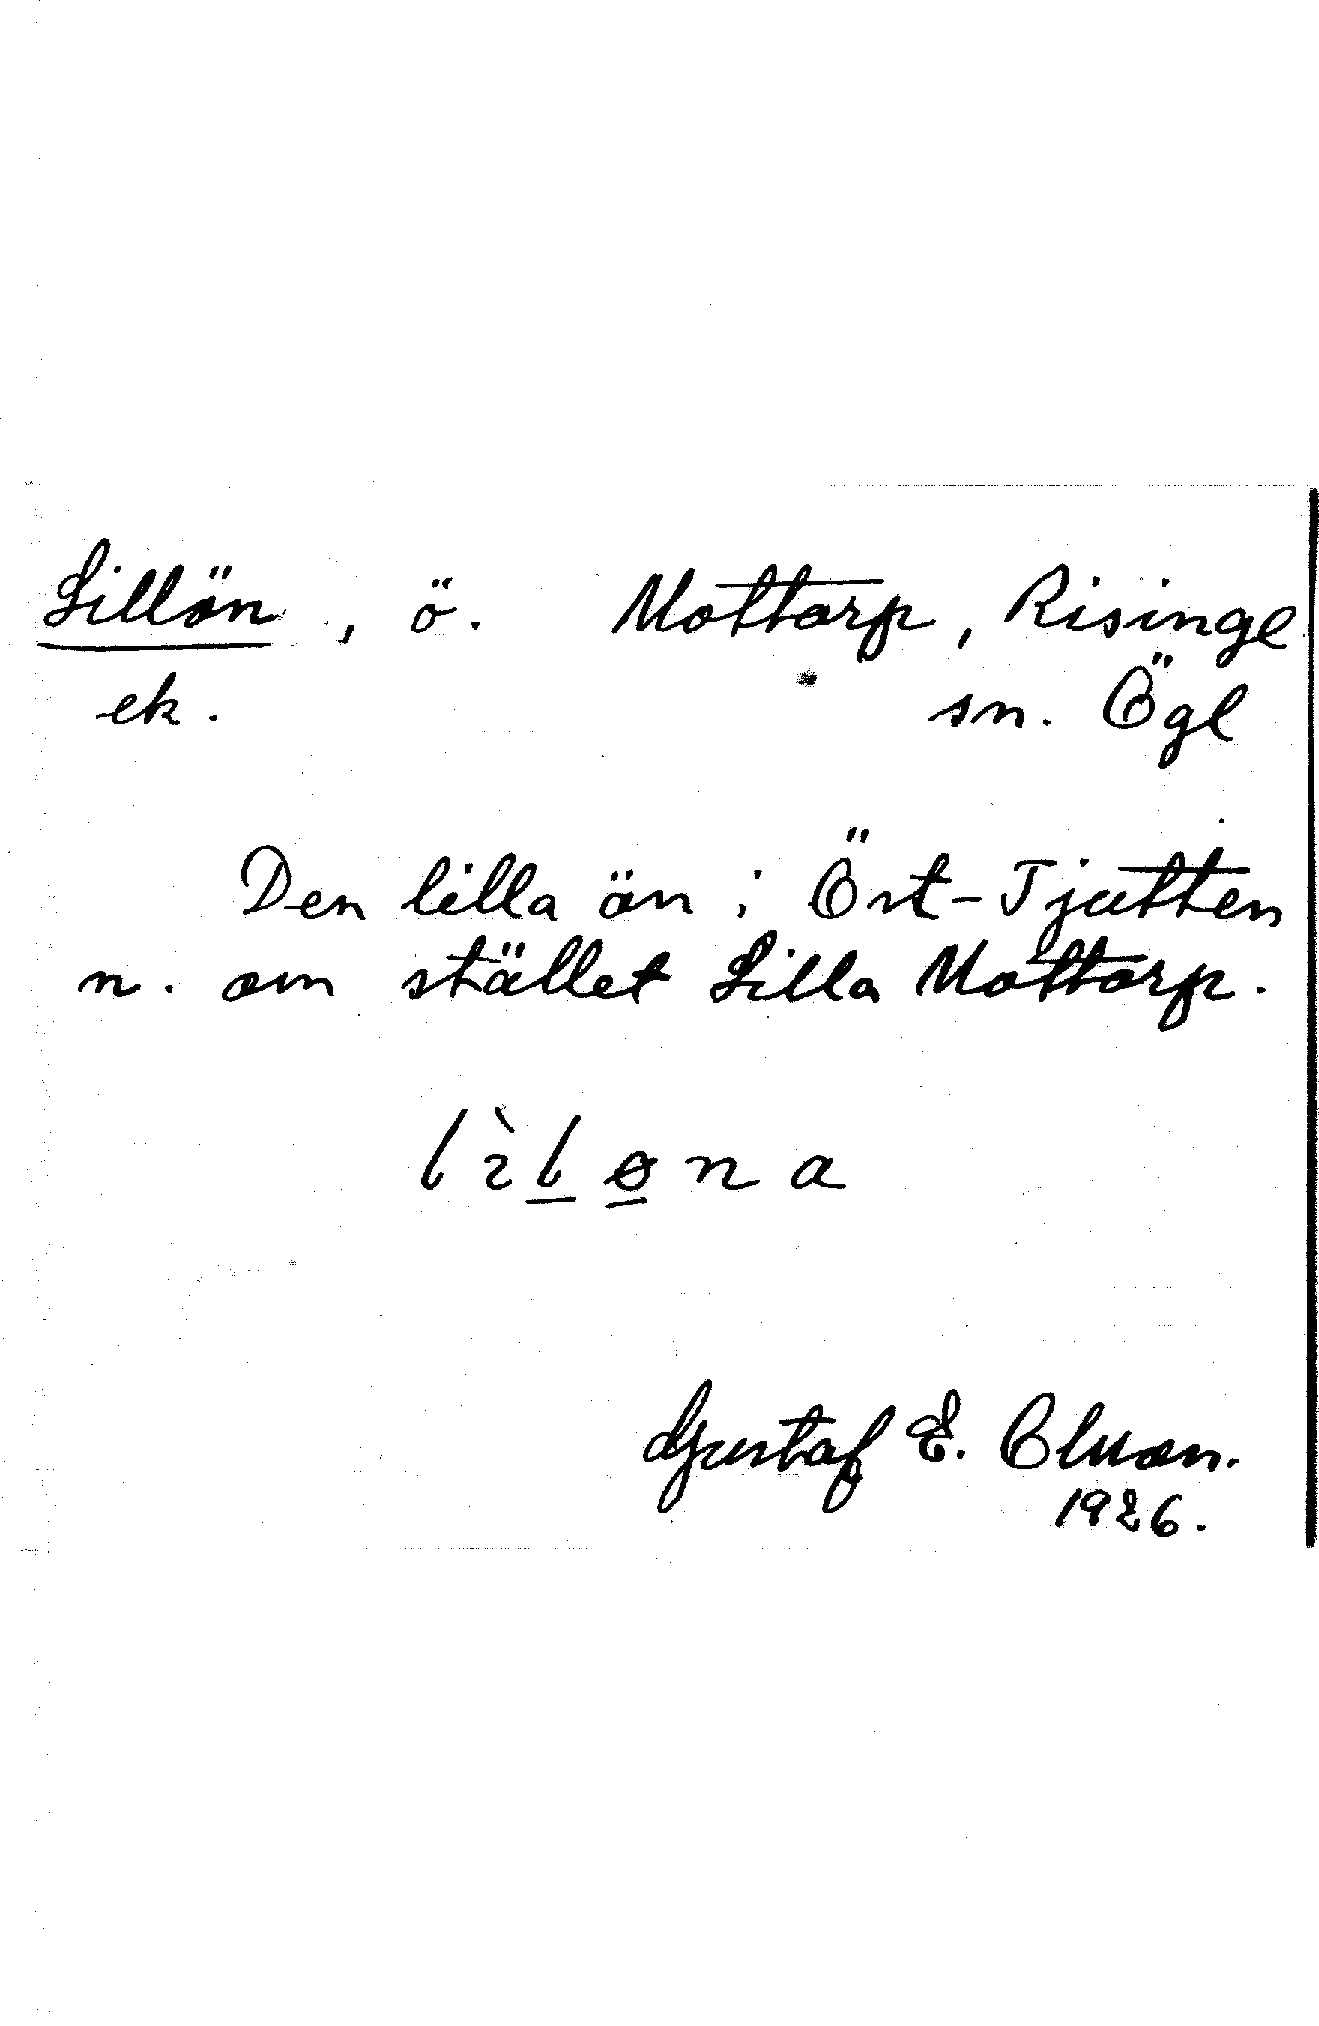 Lillön, ö. Mottorp, Risinge
ek. sn. Ögl
Den lilla ön i Öst-Tjutten
n. om stället Lilla Mottorp.
lìløna
Gustaf E.
1926.